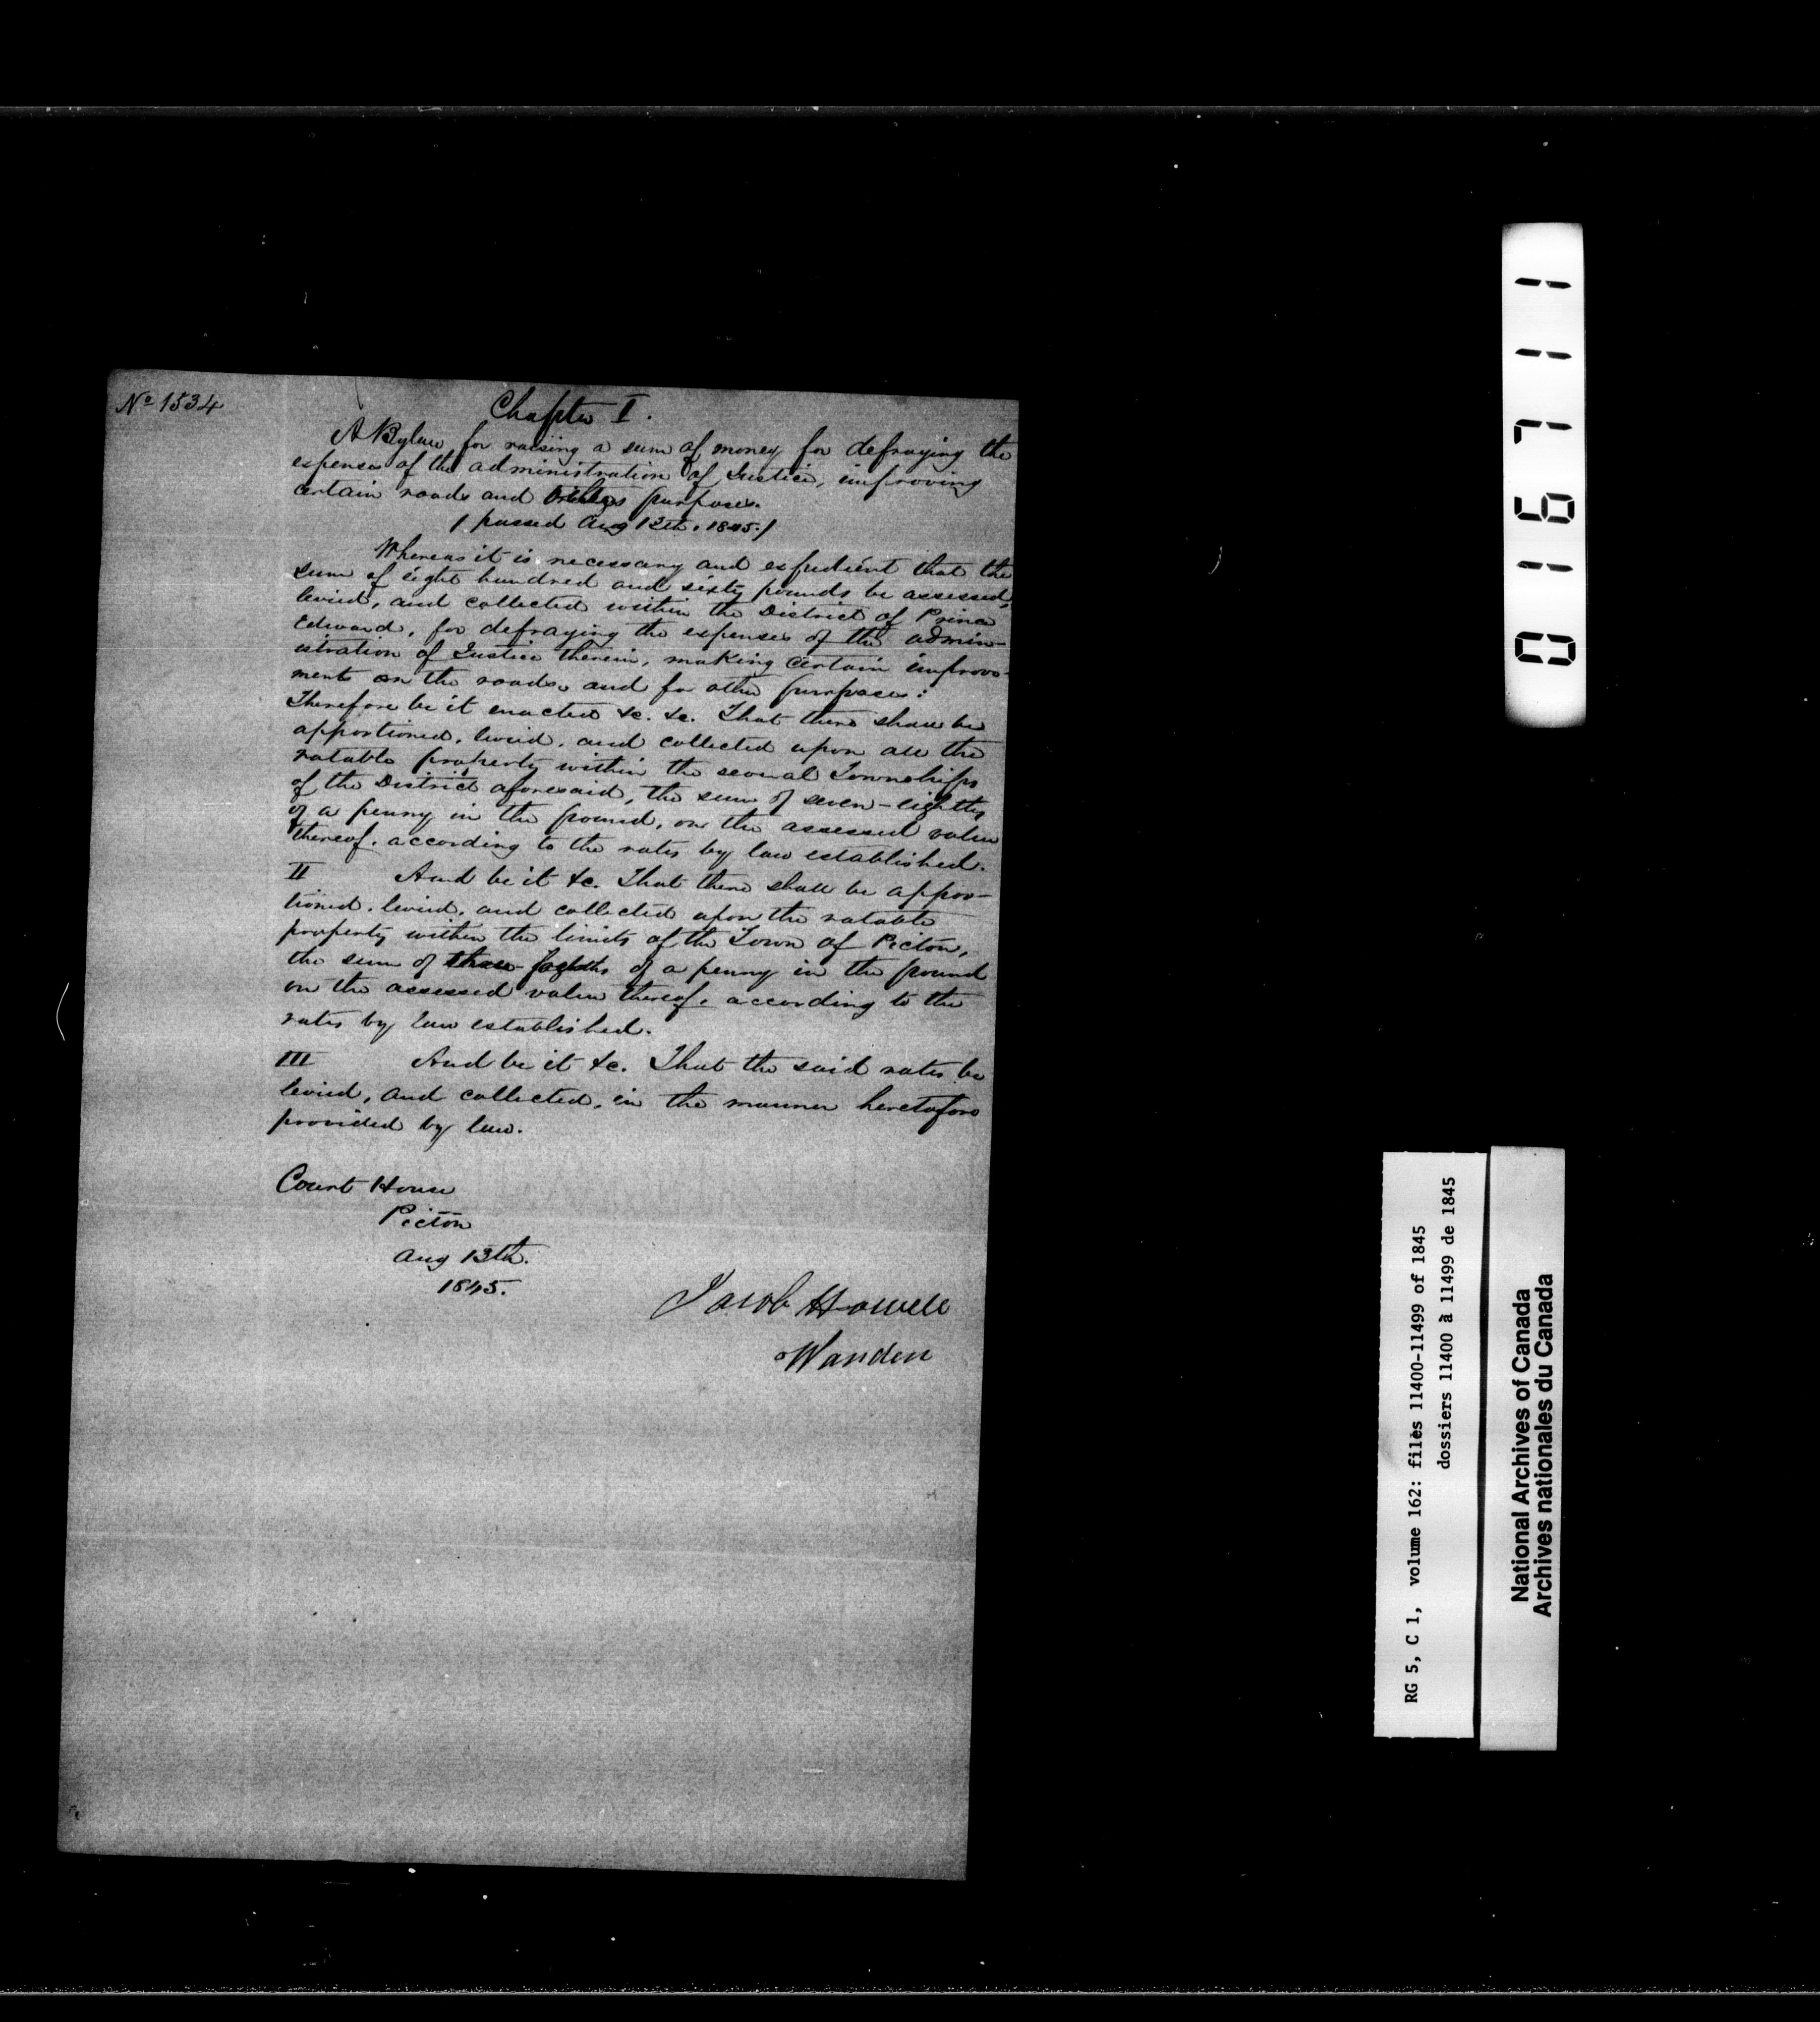 No 1534
Chapter I.
A Bylaw for raising a sum of money for defraying the
expenses of the administration of Justice, improving
certain roads and purposes.
( passed Aug 13th. 1845. )
Whereas it is necessary and expedient that the
sum of eight hundred and sixty pounds be assessed,
levied, and collected within the District of Prince
Edward, for defraying the expenses of the admin-
istration of Justice therein, making certain improve-
ments on the roads, and for other purposes:
Therefore be it enacted &c. &c. That there shall be
apportioned, levied, and collected upon all the
ratable property within the several Townships
of the District aforesaid, the sum of seven-eighths
of a penny in the pound, on the assessed value
thereof, according to the rates by law established.
II And be it &c. That there shall be appor-
tioned, levied, and collected upon the ratable
property within the limits of the Town of Picton,
the sum of three of a penny in the pound
on the assessed value thereof, according to the
rates by law established.
III And be it &c. That the said rates be
levied, and collected, in the manner heretofore
provided by law.
Court House
Picton
Aug 13th.
1845.
Jacob Howell
Warden
016711
RG 5, C 1, volume 162: files 11400-11499 of 1845
dossiers 11400 à 11499 de 1845
National Archives of Canada
Archives nationales du Canada